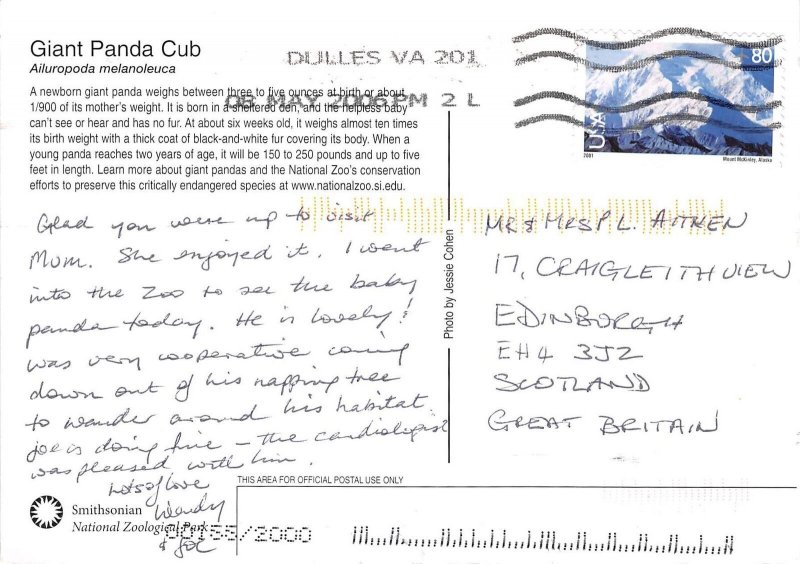 Giant Panda Cub
Ailuropoda melanoleuca
A newborn giant panda weighs between three to five ounces at birth or about
1/900 of its mother's weight. It is born in a sheltered den, and the helpless baby
can't see or hear and has no fur. At about six weeks old, it weighs almost ten times
its birth weight with a thick coat of black-and-white fur covering its body. When a
young panda reaches two years of age, it will be 150 to 250 pounds and up to five
feet in length. Learn more about giant pandas and the National Zoo's conservation
efforts to preserve this critically endangered species at www.nationalzoo.si.edu.
DULLES VA 201
08 MAY 2006 PM 2 L
80
USA
2001
Mount McKinley, Alaska
Glad you were up to visit
Mum. She enjoyed it. I went
into the Zoo to see the baby
panda today. He is lovely!
was very cooperative coming
down out of his napping tree
to wander around his habitat.
Joe is doing fine – the cardiologist
was pleased with him.
Lots of love
Wendy
& Joe
Photo by Jessie Cohen
MR & MRS P L. AITKEN
17, CRAIGLEITH VIEW
EDINBURGH
EH4 3JZ
SCOTLAND
GREAT BRITAIN
THIS AREA FOR OFFICIAL POSTAL USE ONLY
Smithsonian
National Zoological Park
00155/2000